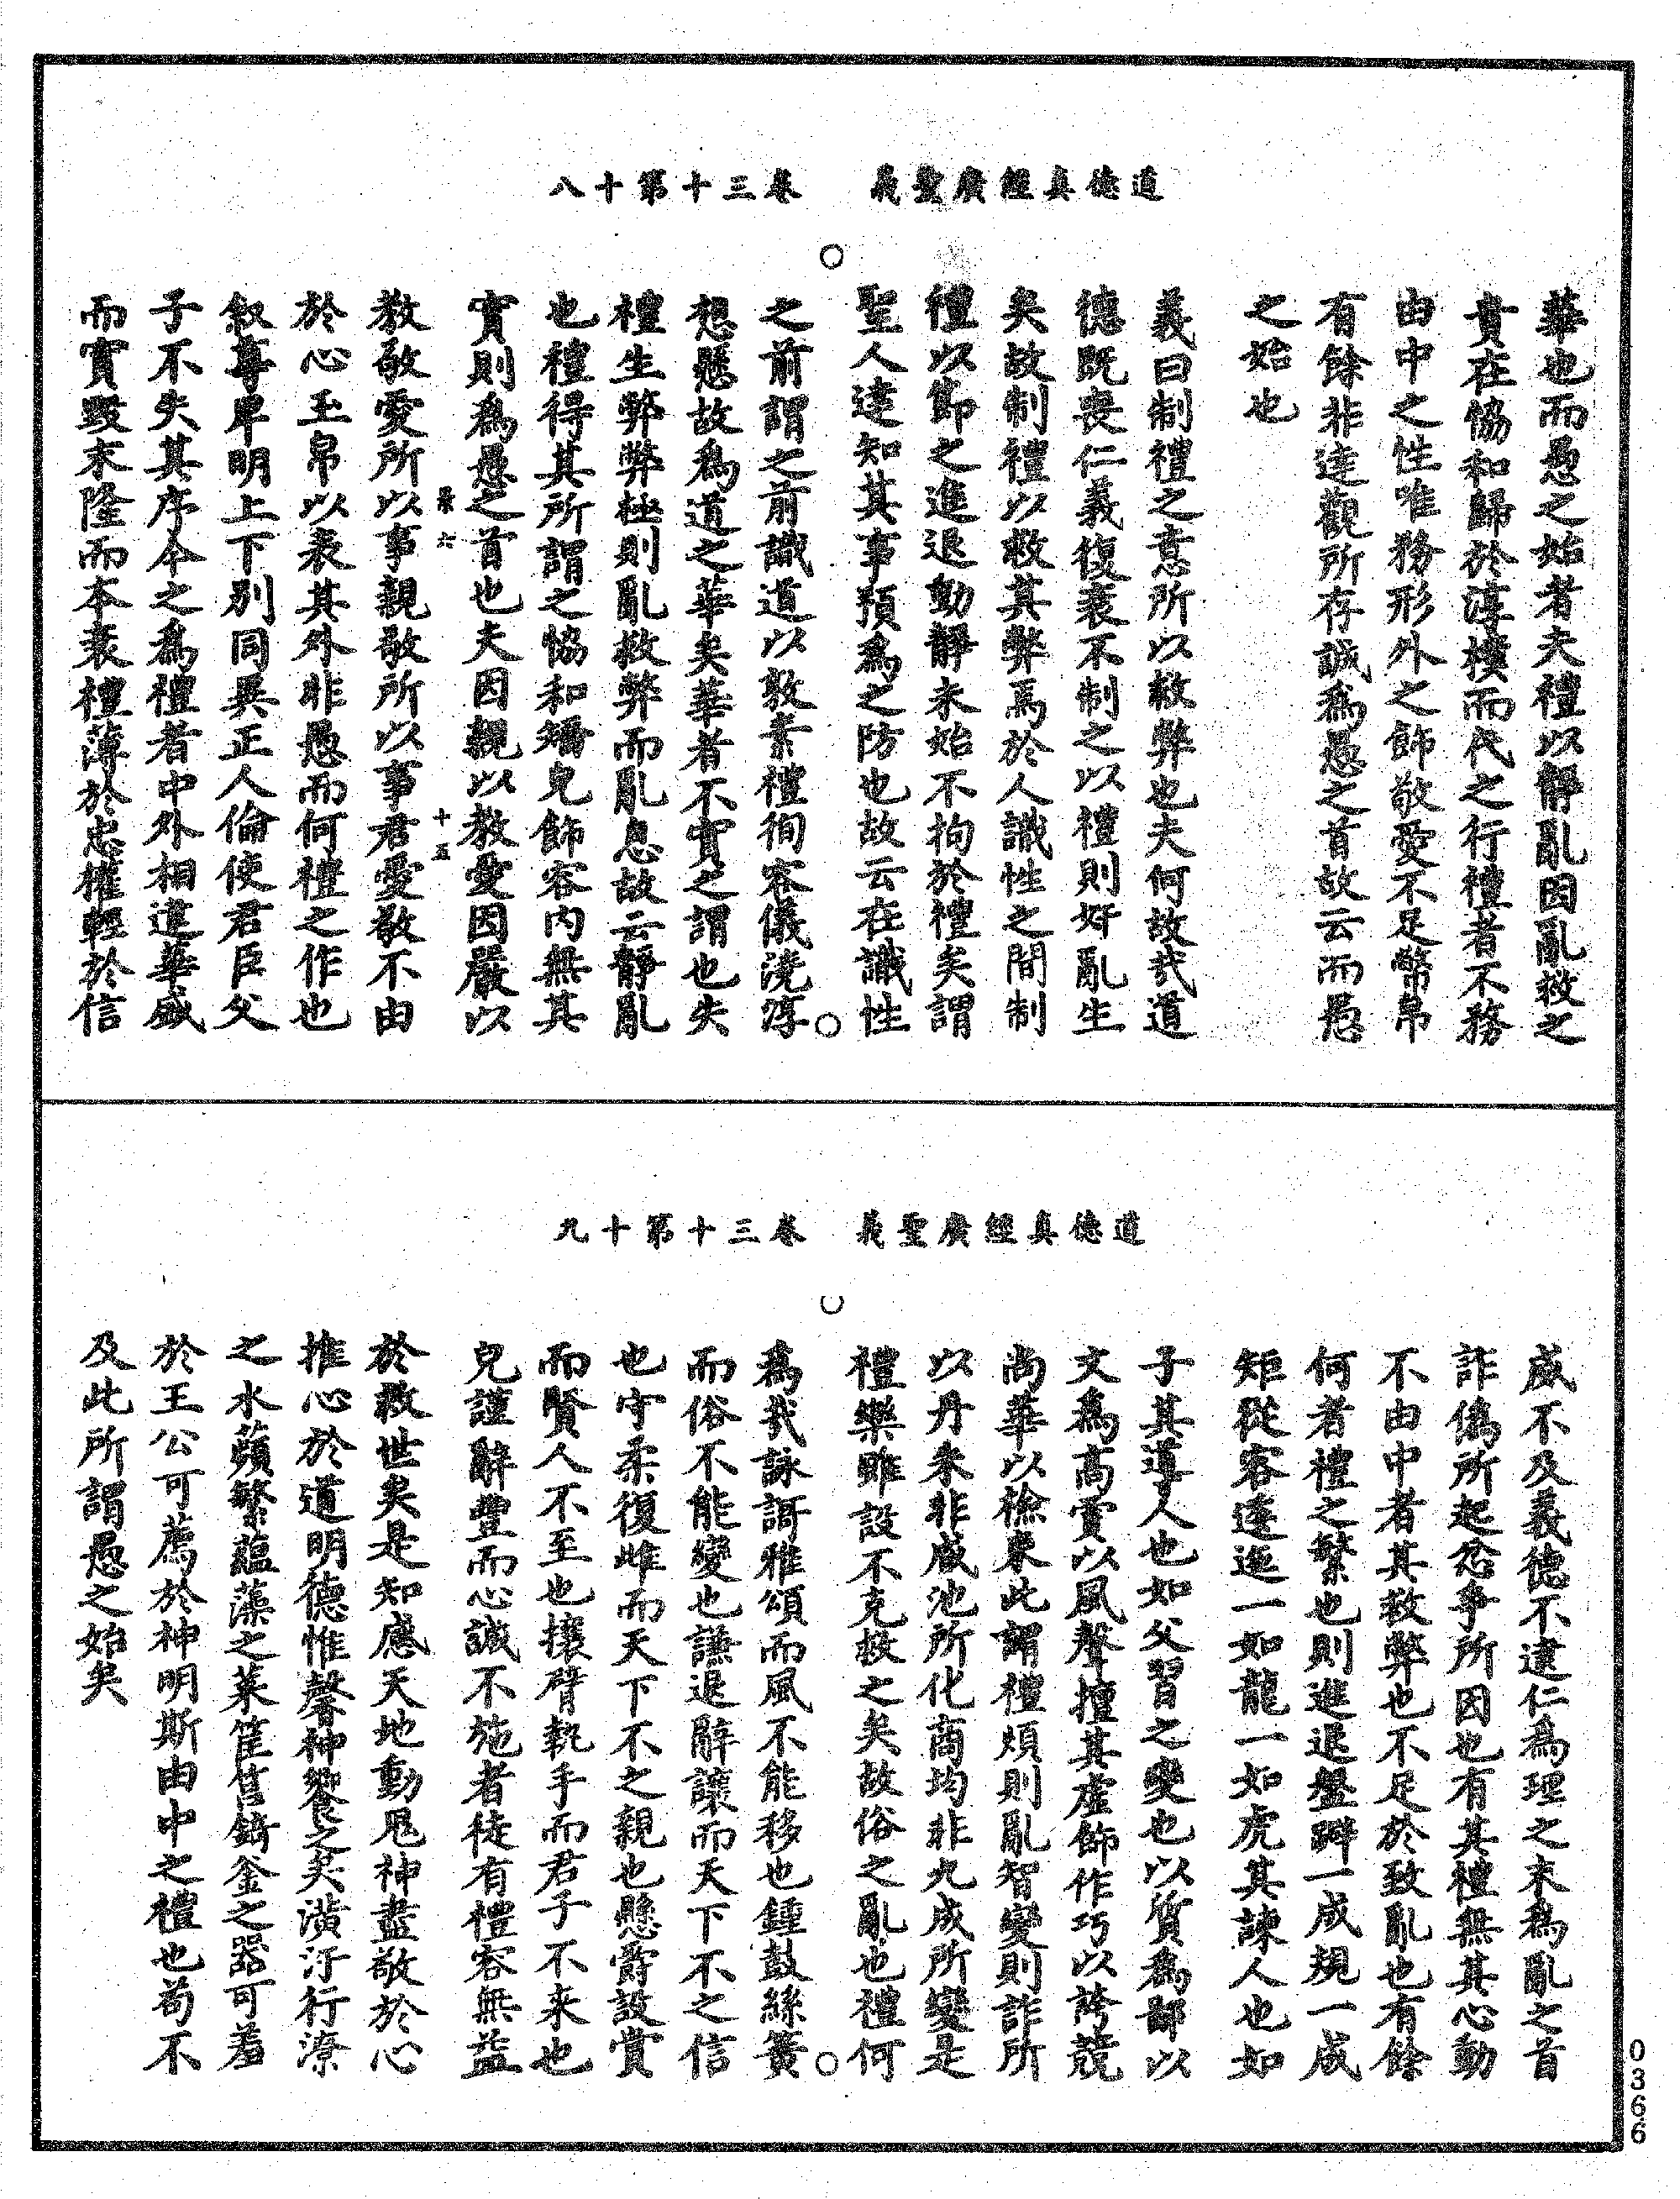 道德真經廣聖義　卷三十第十八
華也而愚之始者夫禮以靜亂因亂救之
貴在協和歸於淳樸而代之行禮者不務
由中之性唯務形外之飾敬愛不足幣帛
有餘非達觀所存誠為愚之首故云而愚
之始也
義曰制禮之意所以救弊也夫何故哉道
德既喪仁義復衰不制之以禮則奸亂生
矣故制禮以救其弊焉於人識性之間制
禮以節之進退動靜未始不拘於禮矣謂
聖人達知其事預為之防也故云在識性
之前謂之前識道以敦素禮徇容儀澆淳
想懸故為道之華矣華者不實之謂也失
禮生弊弊極則亂救弊而亂息故云靜亂
也禮得其所謂之協和矯皃飾容內無其
實則為愚之首也夫因親以教愛因嚴以
景六　十五
教敬愛所以事親敬所以事君愛敬不由
於心玉帛以表其外非愚而何禮之作也
叙尊卑明上下別同異正人倫使君臣父
子不失其序今之為禮者中外相違華盛
而實毀末隆而本衰禮薄於忠權輕於信
道德真經廣聖義　卷三十第十九
威不及義德不逮仁為理之末為亂之首
詐偽所起忿爭所因也有其禮無其心動
不由中者其救弊也不足於致亂也有餘
何者禮之繁也則進退盤辟一成規一成
矩從容逶迤一如龍一如虎其諫人也如
子其導人也如父習之變也以質為鄙以
文為高賞以風聲擅其虛飾作巧以誇競
尚華以檢衆此謂禮煩則亂智變則詐所
以丹朱非咸池所化商均非九成所變是
禮樂雖設不克救之矣故俗之亂也禮何
為哉詠謌雅頌而風不能移也鍾鼓絲簧
而俗不能變也謙退辭讓而天下不之信
也守柔復雌而天下不之親也懸爵設賞
而賢人不至也攘臂執手而君子不来也
皃謹辭豐而心誠不施者徒有禮容無益
於救世矣是知感天地動鬼神盡敬於心
推心於道明德惟馨神饗之矣潢汙行潦
之水蘋蘩蘊藻之菜筐筥錡釜之器可羞
於王公可薦於神明斯由中之禮也苟不
及此所謂愚之始矣
0366